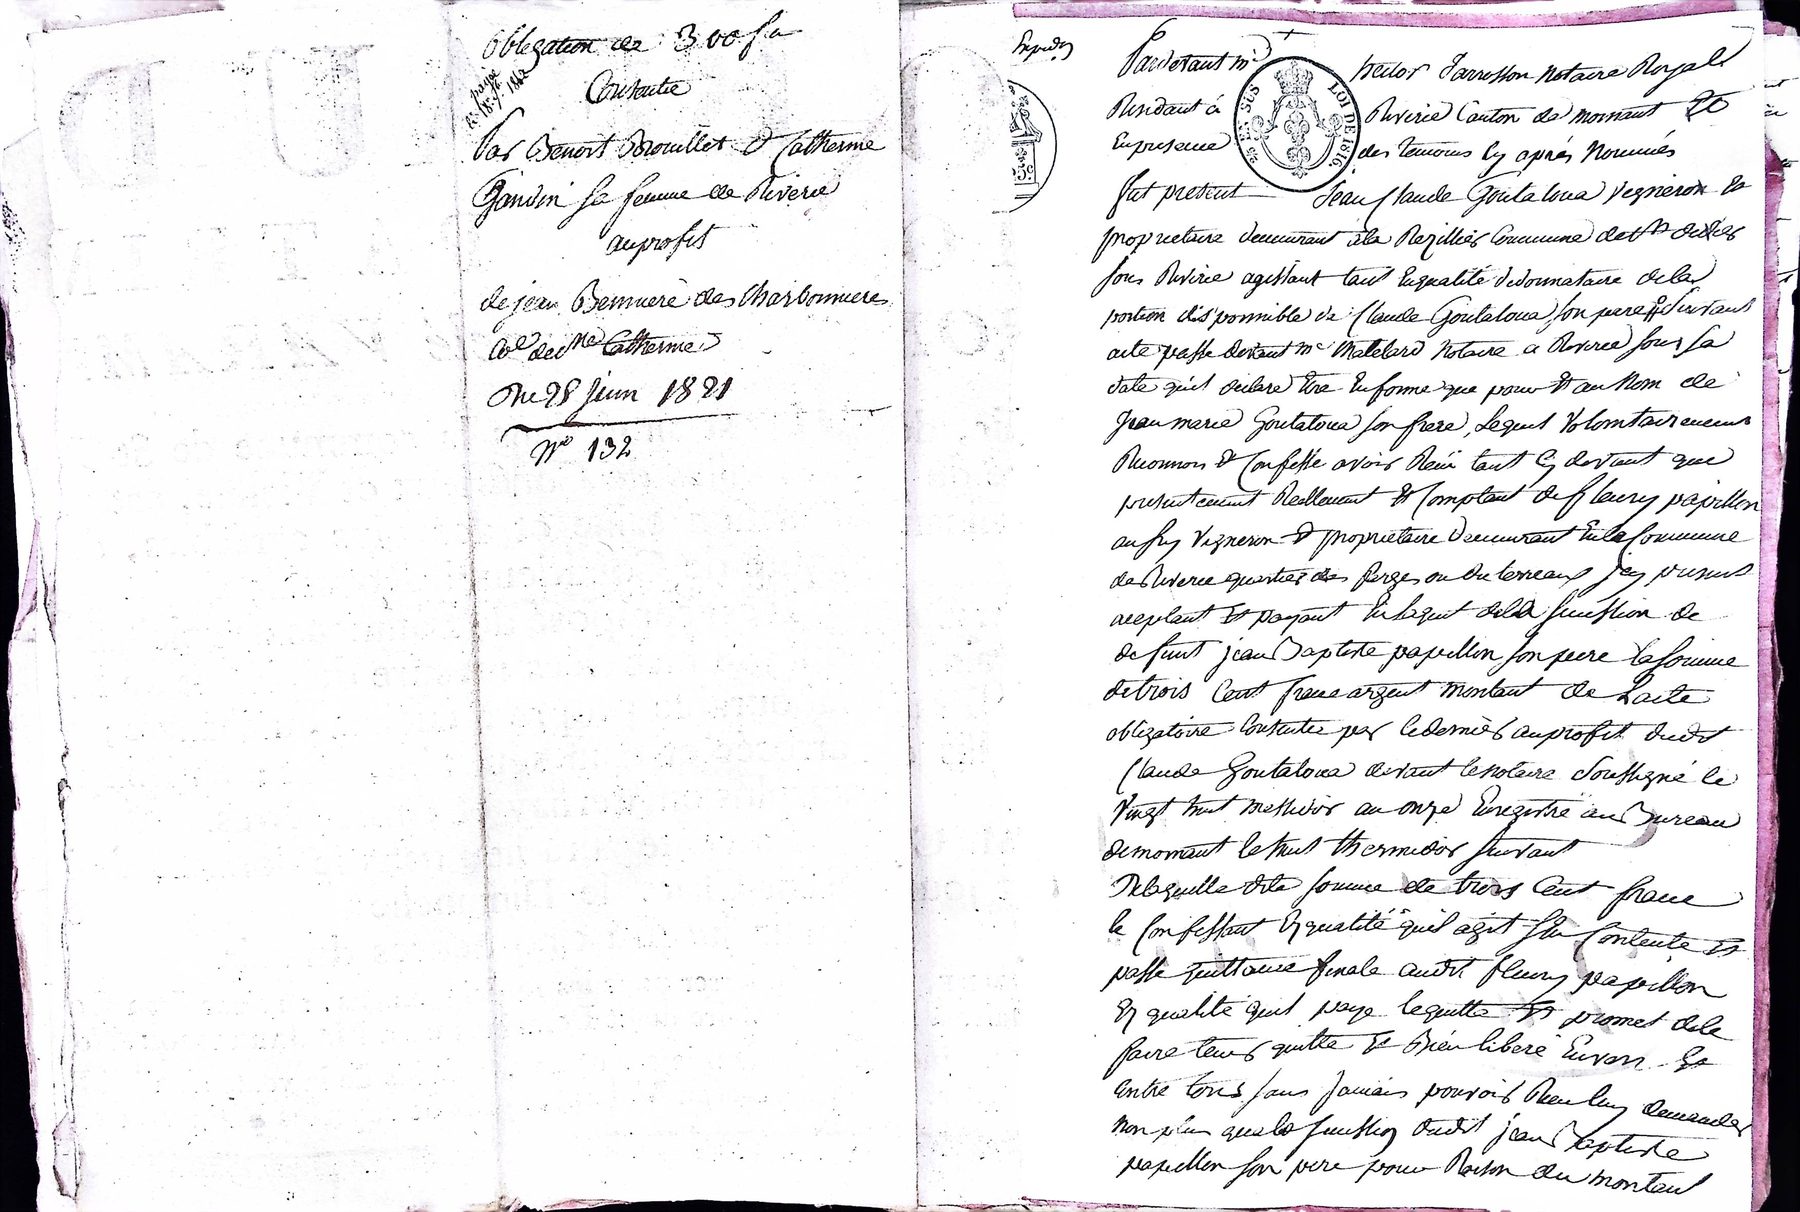 Obligation de 300 f a
Consentie
payée
Par Benoit Brouillet & Catherine
Gaudin sa femme de Riverie
au profit
de jean Bernuere des Charbonnieres
Cne de Ste Catherine
Du 28 juin 1821
N° 132
Expedn
Pardevant Me hector Jarrosson Notaire Royal
Residant à Riverie Canton de mornant Et
En presence des temoins Cy après Nommés
fut présent Jean Claude Goutaloua vigneron Et
proprietaire demeurant a la Rezillier Commune de St didier
sous Riverie agissant tant En qualité de donnataire de la
portion disponnible de Claude Goutaloua son pere Suivant
acte passé devant Me Chatelard Notaire a Riverie sous sa
date qu'il declare Etre En forme que pour Et au Nom de
Jean marie Goutaloua son frere, Lequel Volontairement
Reconnois & Confesse avoir Reçu tant Cy devant que
presentement Reellement Et Comptant de fleury papillon
aussy vigneron & proprietaire demeurant En la Commune
de Riverie quartier des forges ou du terreaux Icy present
acceptant Et payant En l'aquit de la succession de
defunt jean Baptiste papillon son pere la somme
de trois Cent franc argent montant de L'acte
obligatoire Consentie par le dernier au profit dudit
Claude Goutaloua devant le Notaire Soussigné le
Vingt huit messidor an onze Enregistré au Bureau
de mornant le huit thermidor suivant
De laquelle dite somme de trois Cent franc
le Confessant Es qualité qu'il agit s'en Contente Et
passe quittance finale audit fleury papillon
Es qualité quil paye le quitte Et promet de le
faire tenir quitte Et Bien libéré Envers Et
Contre tous sans Jamais pouvoir Rien luy demander
Non plus qua la succession dudit jean Baptiste
papillon son pere pour Raison du montant